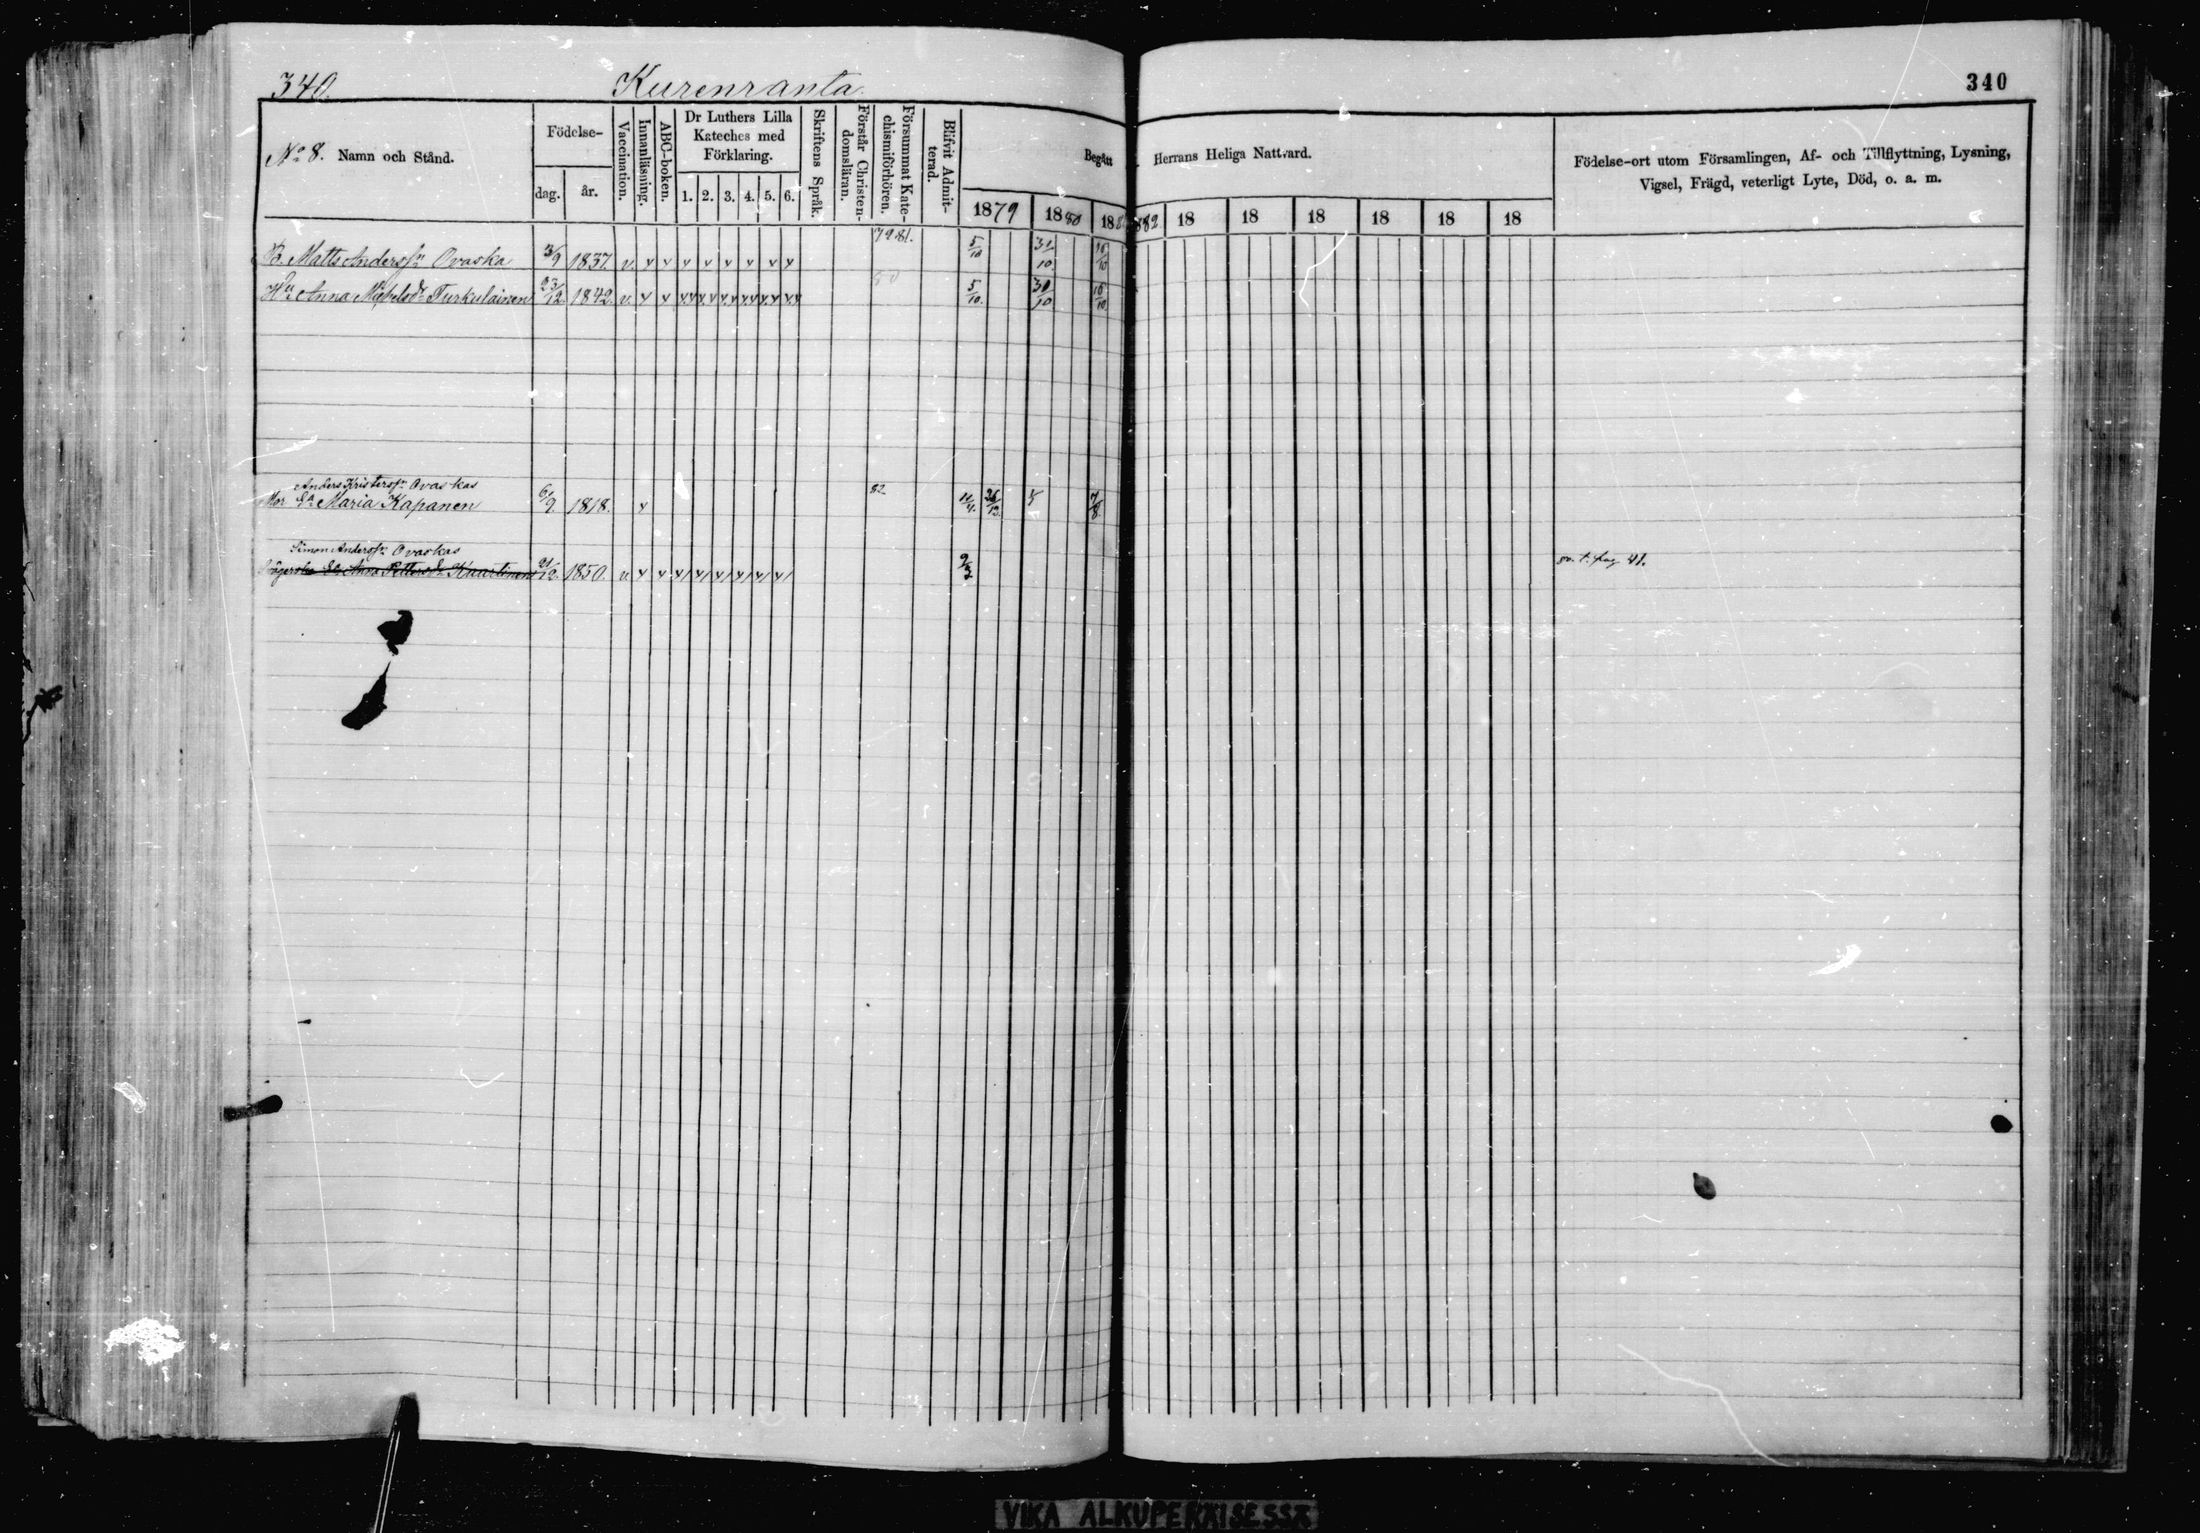 340. Kurenranta. 340
No 8. Namn och Stånd.
Födelse-
dag. år.
Vaccination.
Innanläsning.
ABC-boken.
Dr Luthers Lilla
Kateches med
Förklaring.
1. 2. 3. 4. 5. 6.
Skriftens Språk.
Förstår Christen-
domsläran.
Försummat Kate-
chismiförhören.
Blifvit Admit-
terad.
Begått Herrans Heliga Nattvard.
1879 1880 188 882 18 18 18 18 18 18
Födelse-ort utom Församlingen, Af- och Tillflyttning, Lysning,
Vigsel, Frägd, veterligt Lyte, Död, o. a. m.
B. Matts Anderss:n Ovaska 3/9 1837. v. v v v v v v v v 79 81. 5/10 31/10. 16/10
Hu Anna Mickelsdr Turkulainen 23/12. 1842. v. v v 5/10. 31/10 16/10
Anders Kristerss:n Ovaskas
Mor Ea Maria Kapanen 6/9. 1818. v 82 11/4. 26/12. 7/8.
Simon Anderss:n Ovaskas
Ea Anna Pettersdr Kaartinen 21/12. 1850. v. v v 9/3 öv. t. pag 41.
VIKA ALKUPERÄISESSÄ